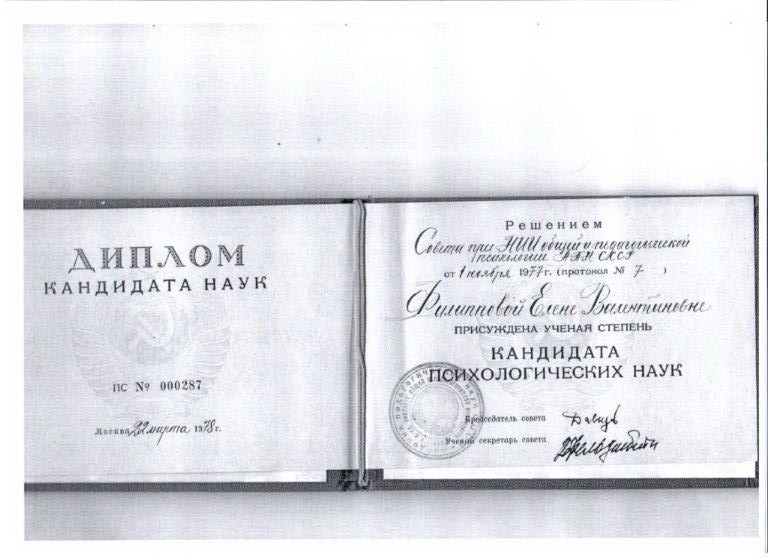 ДИПЛОМ
КАНДИДАТА НАУК
ПС № 000287
Москва 22 марта 1978 г.
Решением
Совета при НИИ общей и педагогической
психологии АПН СССР
от 1 ноября 1977 г. (протокол № 7 )
Филипповой Елене Валентиновне
ПРИСУЖДЕНА УЧЕНАЯ СТЕПЕНЬ
КАНДИДАТА
ПСИХОЛОГИЧЕСКИХ НАУК
Председатель совета
Ученый секретарь совета